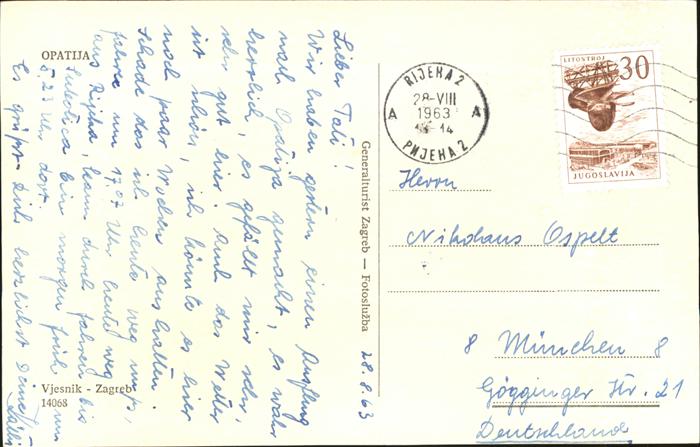 OPATIJA
Lieber Tati!
Wir haben gestern einen Ausflug
nach Opatija gemacht, es wahr
herrlich, es gefällt mir sehr,
sehr gut hier. Auch das Wetter
ist schön, ich könnte es hier
noch paar Wochen aushalten.
Schade das ich heute weg muss,
fahre um 17,07 Uhr heute weg
aus Rijeka, kann durch fahren bis
Subotica bin morgen früh um
5,23 Uhr dort.
Es grüsst Dich herzlichst Deine
28.8.63
Vjesnik - Zagreb
14068
Generalturist Zagreb — Fotoslužba
RIJEKA 2
28-VIII
1963
14
A A
РИЈЕКА 2
LITOSTROJ
30
JUGOSLAVIJA
Herrn
Nikolaus Ospelt
8 München 8
Gögginger Str. 21
Deutschland